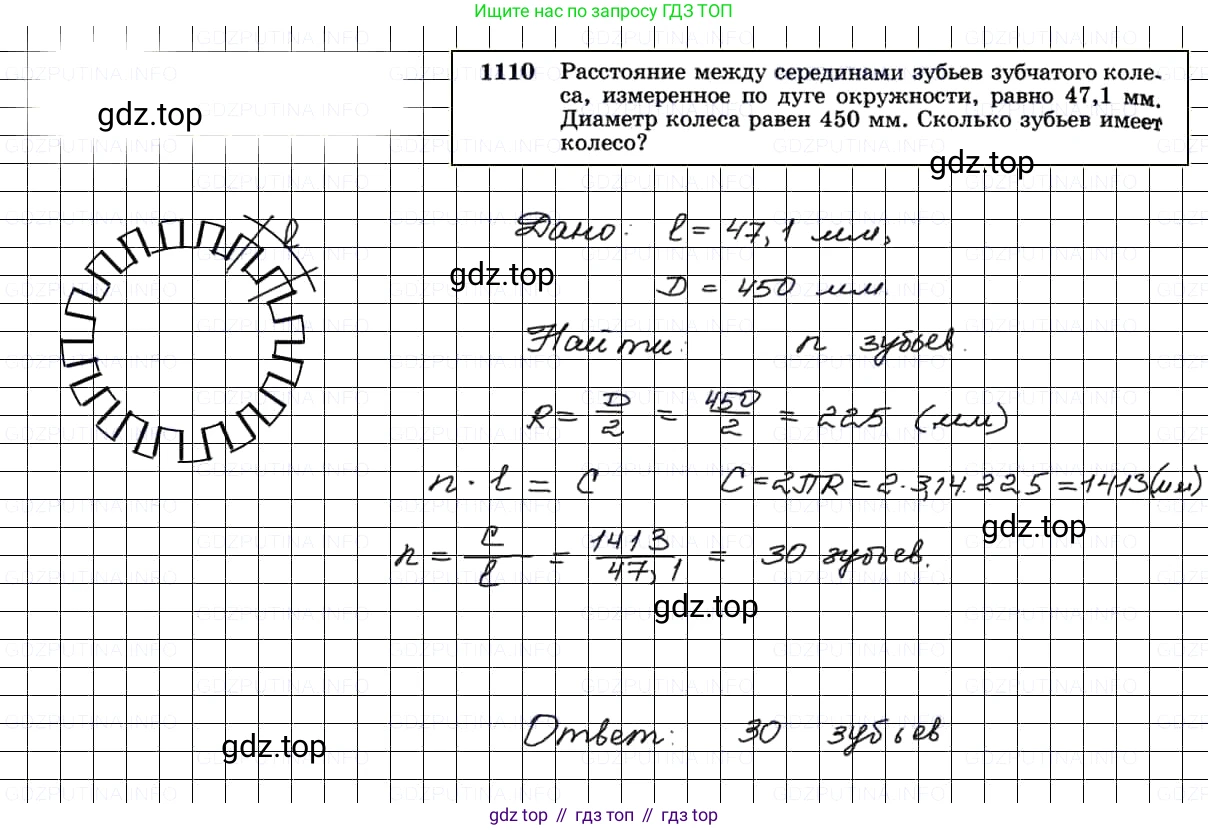 Ищите нас по запросу ГДЗ ТОП
1110 Расстояние между серединами зубьев зубчатого коле-
са, измеренное по дуге окружности, равно 47,1 мм.
Диаметр колеса равен 450 мм. Сколько зубьев имеет
колесо?
gdz.top
gdz.top
Дано: l = 47,1 мм,
l
gdz.top
D = 450 мм.
Найти: n зубьев.
R = D/2 = 450/2 = 225 (мм)
n · l = C C = 2πR = 2·3,14·225 = 1413 (мм)
gdz.top
n = C/l = 1413/47,1 = 30 зубьев.
gdz.top
Ответ: 30 зубьев
gdz.top
gdz top // гдз топ // gdz top
GDZPUTINA.INFO